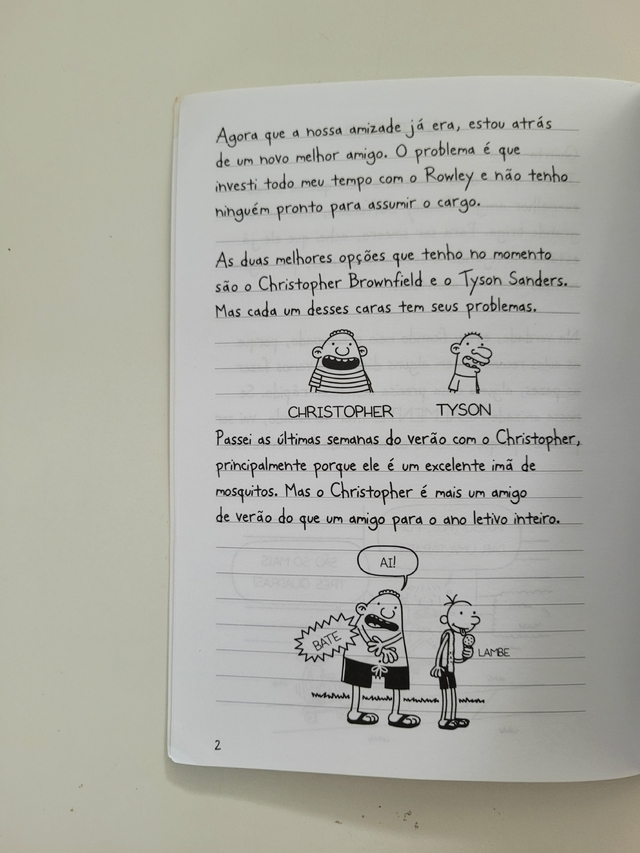 Agora que a nossa amizade já era, estou atrás
de um novo melhor amigo. O problema é que
investi todo meu tempo com o Rowley e não tenho
ninguém pronto para assumir o cargo.
As duas melhores opções que tenho no momento
são o Christopher Brownfield e o Tyson Sanders.
Mas cada um desses caras tem seus problemas.
CHRISTOPHER TYSON
Passei as últimas semanas do verão com o Christopher,
principalmente porque ele é um excelente imã de
mosquitos. Mas o Christopher é mais um amigo
de verão do que um amigo para o ano letivo inteiro.
AI!
BATE
LAMBE
2